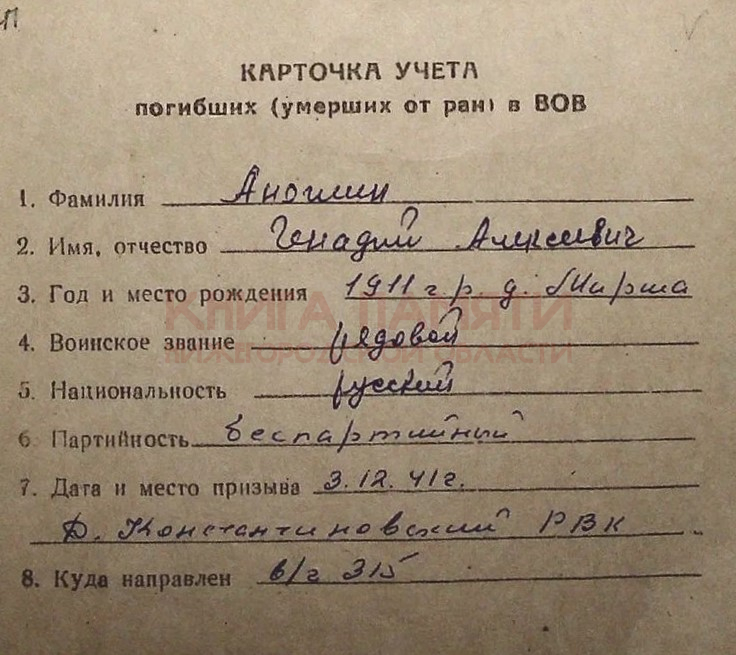 КАРТОЧКА УЧЕТА
погибших (умерших от ран) в ВОВ
1. Фамилия Анохин
2. Имя, отчество Генадий Алексеевич
3. Год и место рождения 1911 г.р. д.
КНИГА ПАМЯТИ
4. Воинское звание рядовой
НИЖЕГОРОДСКОЙ ОБЛАСТИ
5. Национальность русский
6 Партийность беспартийный
7. Дата и место призыва 3.12.41г.
Д. Константиновский РВК
8. Куда направлен в/г 315